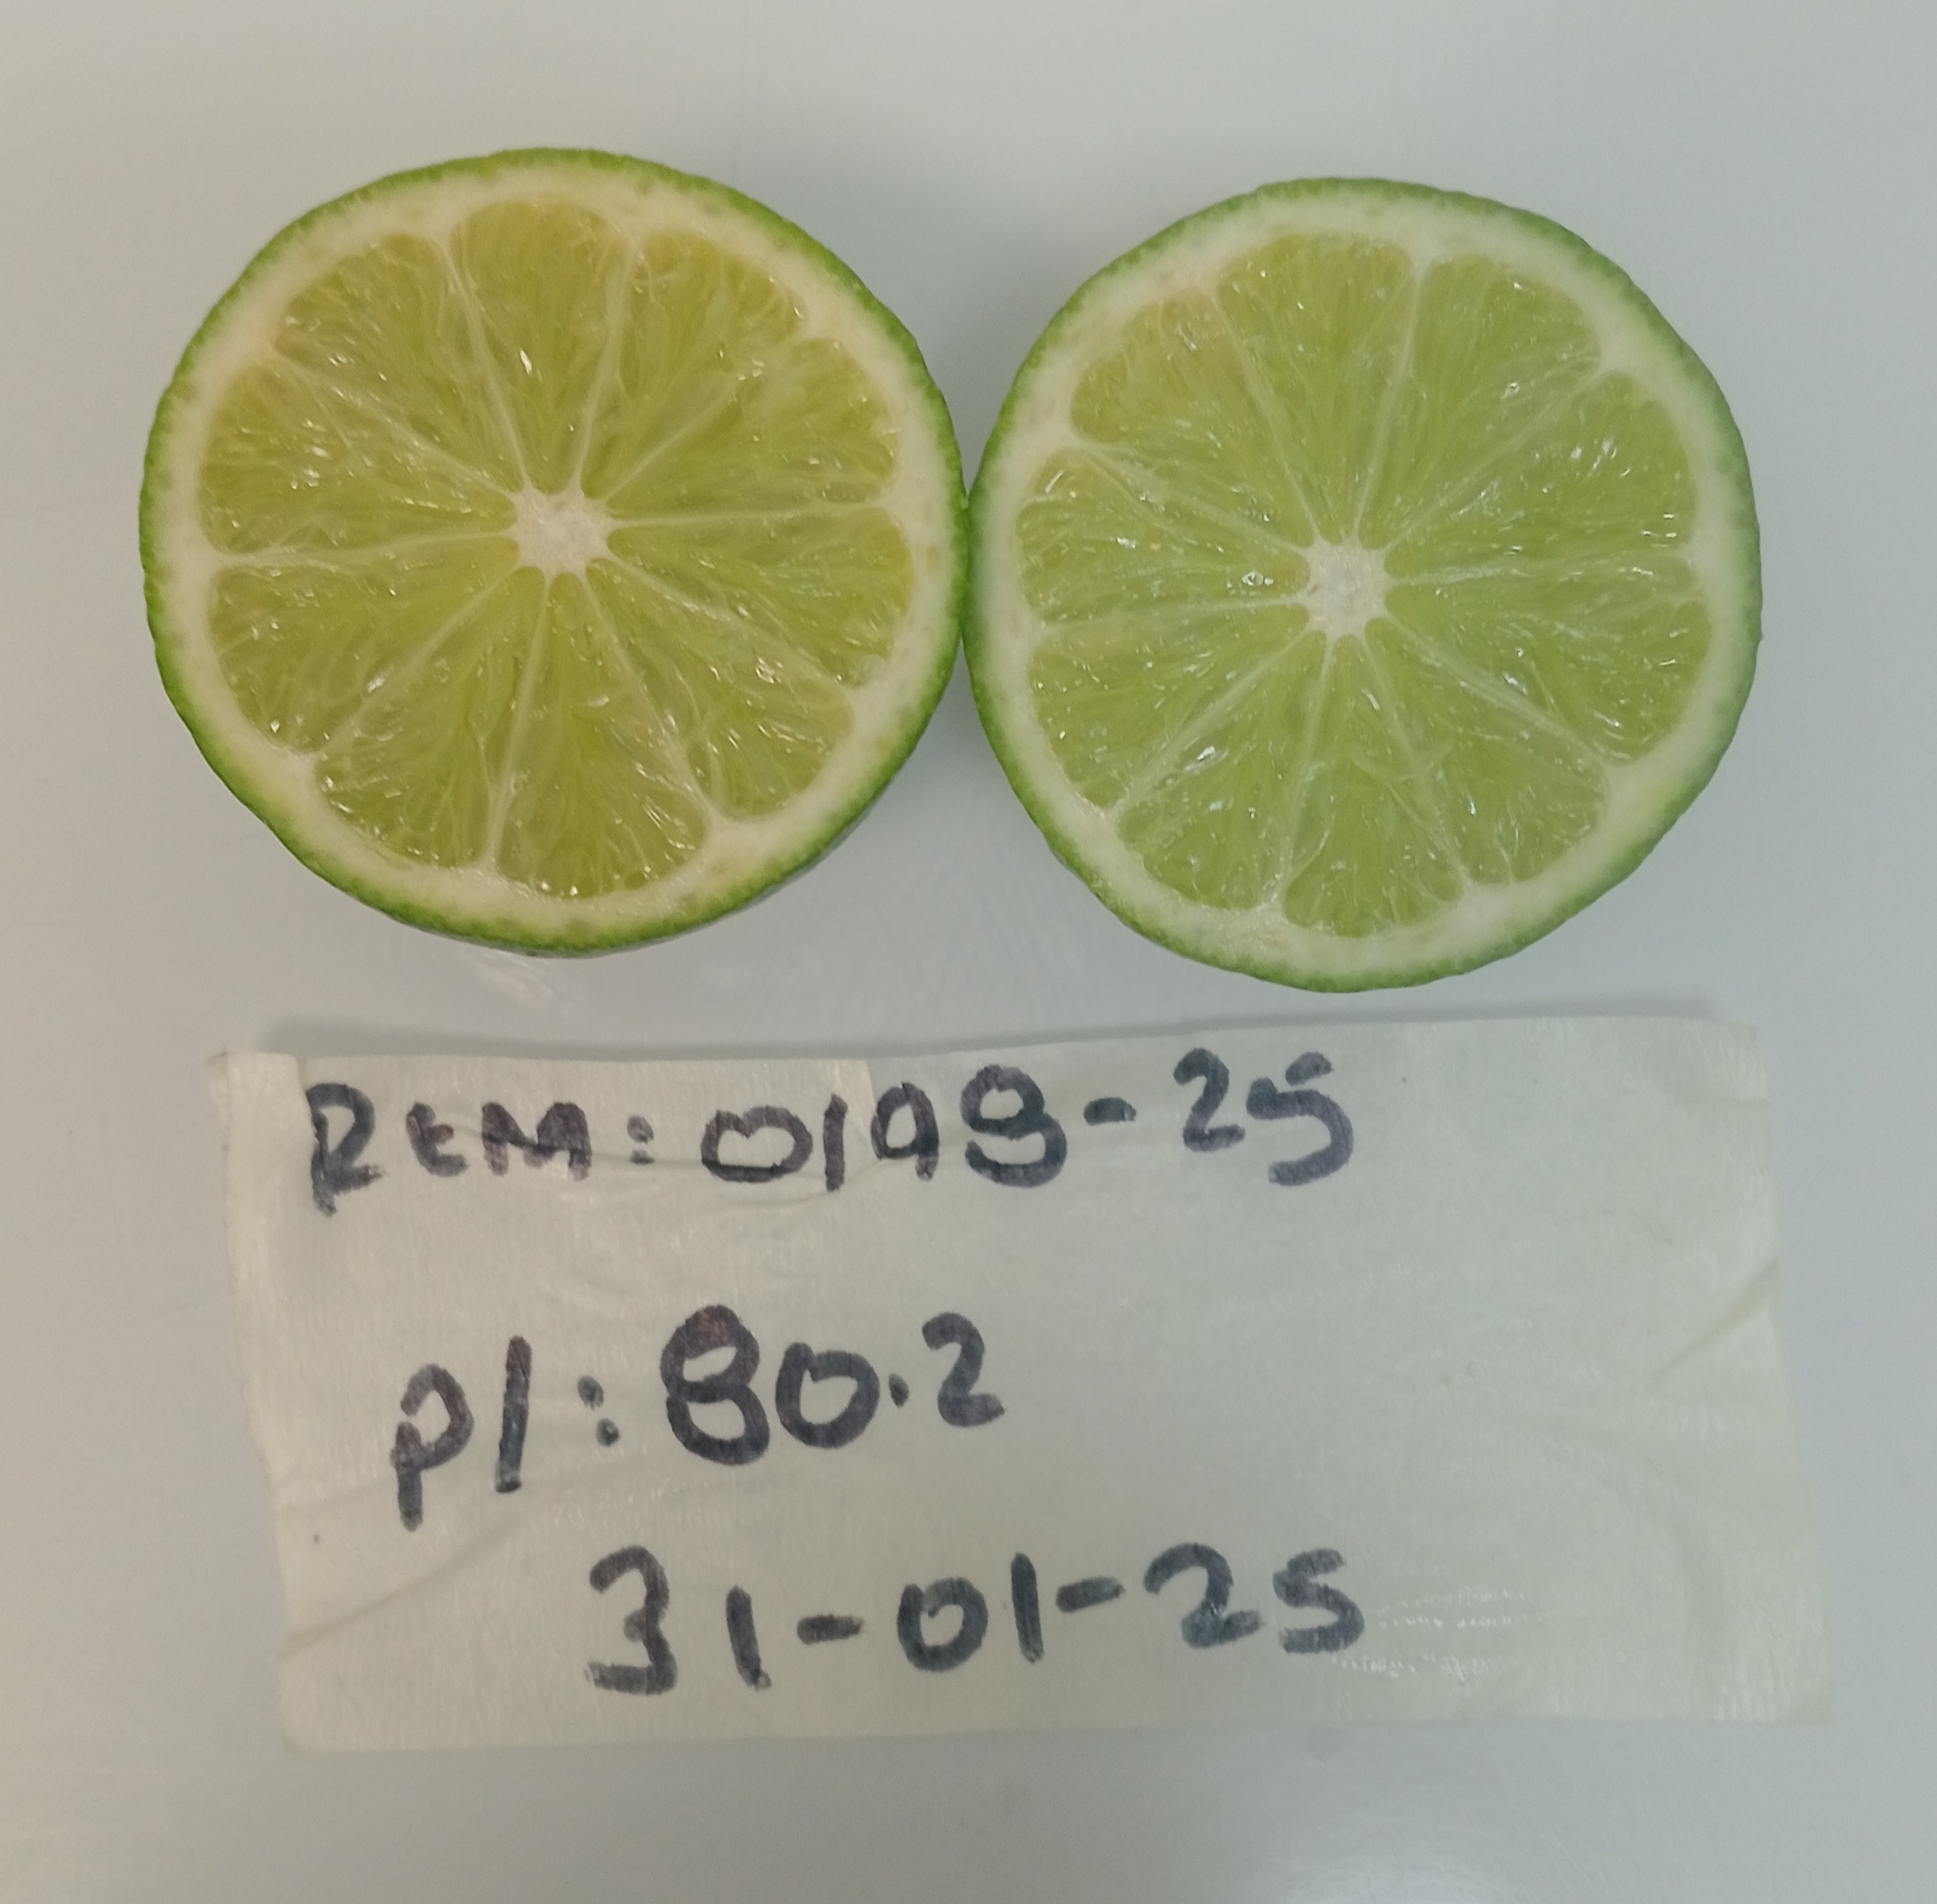 REM: 0198-25
P/: 80.2
31-01-25